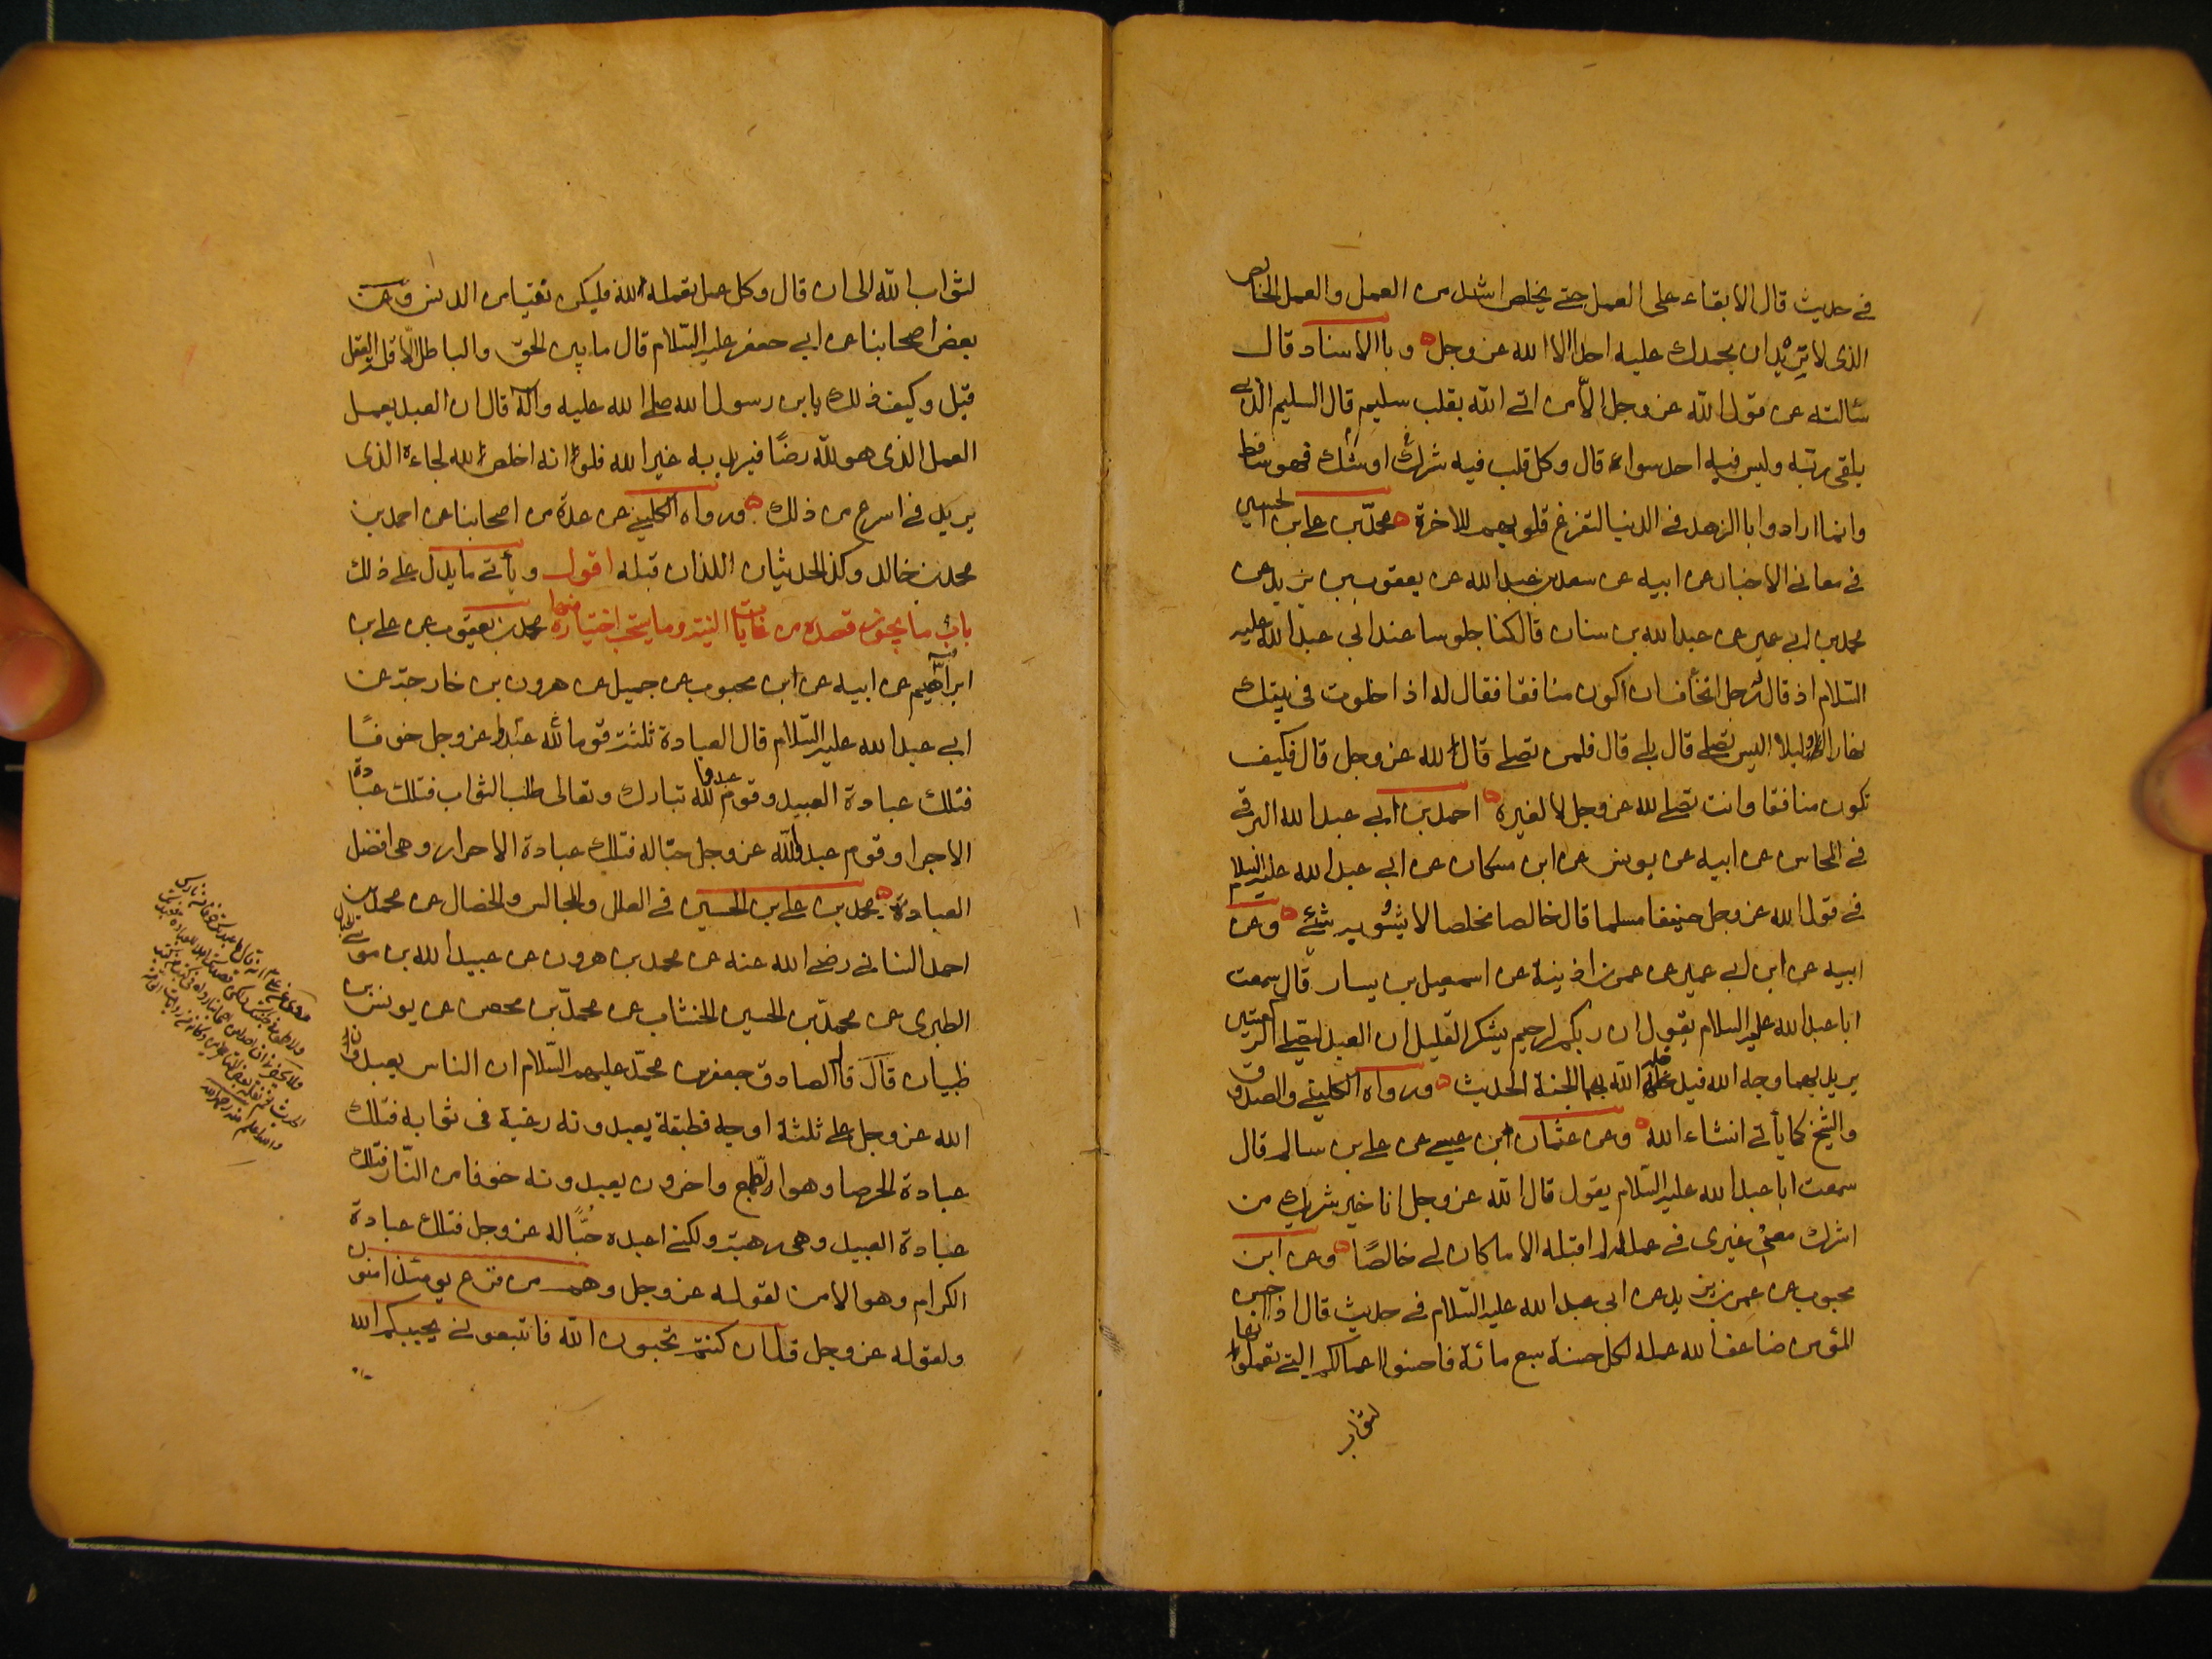 في حديث قال الابقاء على العمل حتى يخلص اشد من العمل والعمل الخالص
الذى لا تريد ان يحمدك عليه احد الا الله عز وجل وبالاسناد قال
سألته عن قول الله عز وجل الا من اتى الله بقلب سليم قال السليم الذى
يلقى ربّه وليس فيه احد سواه قال وكل قلب فيه شرك او شك فهو ساقط
وانما ارادوا بالزهد في الدنيا لتفرغ قلوبهم للاخرة محمد بن على بن الحسين
في معانى الاخبار عن ابيه عن سعد بن عبد الله عن يعقوب بن يزيد عن
محمد بن ابي عمير عن عبد الله بن سنان قال كنا جلوسا عند ابى عبد الله عليه
السّلام اذ قال له رجل اتخاف ان اكون منافقا فقال له اذا خلوت في بيتك
نهارا او ليلا اليس تصلى قال بلى قال فلمن تصلى قال لله عز وجل قال فكيف
تكون منافقا وانت تصلى لله عز وجل لا لغيره احمد بن ابى عبد الله البرقى
في المحاسن عن ابيه عن يونس عن ابن مسكان عن ابى عبد الله عليه السلام
في قول الله عز وجل حنيفا مسلما قال خالصا مخلصا لا يشوبه شئ وعن
ابيه عن ابن ابى عمير عن عمر بن اذينة عن اسمعيل بن يسار قال سمعت
ابا عبد الله عليه السلام يقول ان ربكم لرحيم يشكر القليل ان العبد ليصلى الركعتين
يريد بهما وجه الله فيدخله الله بهما الجنة الحديث ورواه الكلينى والصدوق
والشيخ كما يأتى انشاء الله وعن عثمان بن عيسى عن على بن سالم قال
سمعت ابا عبد الله عليه السّلام يقول قال الله عز وجل انا خير شريك من
اشرك معى غيرى في عمله لم اقبله الا ما كان لى خالصًا وعن ابن
محبوب عن عمر بن يزيد عن ابى عبد الله عليه السّلام في حديث قال اذا احسن
المؤمن ضاعف الله عمله لكل حسنة سبع مائة فاحسنوا اعمالكم التى تعملونها
لثواب
لثواب الله الى ان قال وكل عمل تعمله لله فليكن نقيا من الدنس وعن
بعض اصحابنا عن ابى جعفر عليه السّلام قال ما بين الحق والباطل الا قلة العقل
قيل وكيف ذلك يا بن رسول الله صلى الله عليه وآله قال ان العبد يعمل
العمل الذى هو لله رضًا فيريد به غير الله فلو انه اخلص لله لجاءه الذى
يريد في اسرع من ذلك ورواه الكلينى عن عدة من اصحابنا عن احمد بن
محمد بن خالد وكذا الحديثان اللذان قبله اقول ويأتى ما يدل على ذلك
باب ما يجوز قصده من غايات النية وما يستحب اختياره منها محمد بن يعقوب عن على بن
ابراهيم عن ابيه عن ابن محبوب عن جميل عن هرون بن خارجة عن
ابى عبد الله عليه السّلام قال العبادة ثلثة قوم عبدوا الله عز وجل خوفًا
فتلك عبادة العبيد وقوم عبدوا الله تبارك وتعالى طلب الثواب فتلك عبادة
الاجراء وقوم عبدوا الله عز وجل حبّا له فتلك عبادة الاحرار وهى افضل
العبادة محمد بن على بن الحسين في العلل والمجالس والخصال عن محمد بن
احمد السنانى رضى الله عنه عن محمد بن هرون عن عبيد الله بن موسى
الطبرى عن محمد بن الحسين الخشاب عن محمد بن محصن عن يونس بن
ظبيان قال قال الصادق جعفر بن محمد عليهم السّلام ان الناس يعبدون
الله عز وجل على ثلثة اوجه فطبقة يعبدونه رغبة في ثوابه فتلك
عبادة الحرصاء وهو الطمع واخرون يعبدونه خوفا من النّار فتلك
عبادة العبيد وهى رهبة ولكنى اعبده حُبًّا له عز وجل فتلك عبادة
الكرام وهو الامن لقوله عز وجل وهم من فزع يومئذ امنون
ولقوله عز وجل قل ان كنتم تحبون الله فاتبعونى يحببكم الله